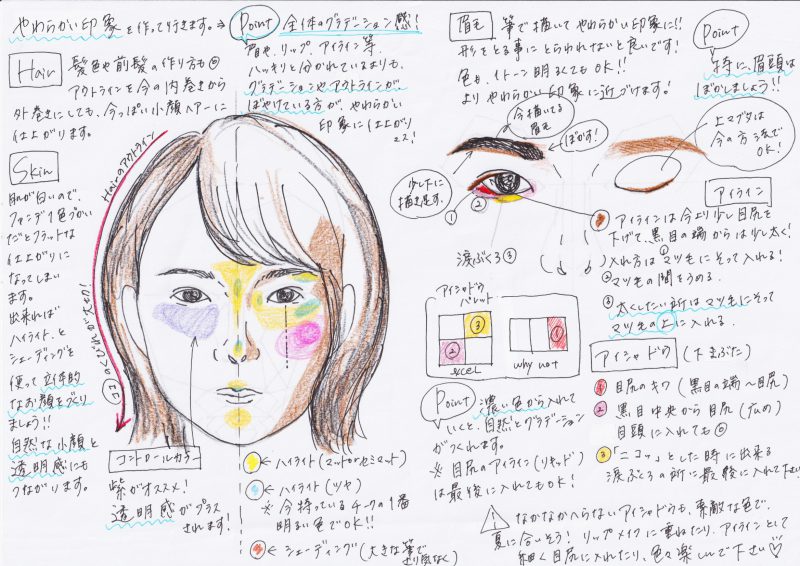 やわらかい印象を作って行きます。→
Point 全体のグラデーション感!
眉や、リップ、アイライン等、
ハッキリと分かれているよりも、
グラデーションやアウトラインが、
ぼやけている方が、やわらかい
印象に仕上がり
ます!
Hair
髪色や前髪の作り方も◎
アウトラインを今の内巻きから
外巻きにしても、今っぽい小顔ヘアーに
仕上がります。
Hairのアウトライン
ココのくびれが大切!
Skin
肌が白いので、
ファンデ1色づかい
だとフラットな
仕上がりに
なってしまい
ます。
出来れば
ハイライト、と
シェーディングを
使って立体的
なお顔をづくり
ましょう!!
自然な小顔と
透明感にも
つながります。
コントロールカラー
紫がオススメ!
透明感がプラス
されます!
←ハイライト(マットorセミマット)
←ハイライト(ツヤ)
※今持っているチークの1番
明るい色でOK!!
←シェーディング(大きな筆で
より気なく)
眉毛
筆で描いてやわらかい印象に!!
形をとる事にとらわれないと良いです!
色も、1トーン明るくてもOK!!
よりやわらかい印象に近づけます!
Point
特に、眉頭は
ぼかしましょう!!
今描いてる
眉毛
ぼかす!
少し下に
描き足す。
①
②
上マブタは
今の方法で
OK!
アイライン
アイラインは今より少し目尻を
下げて、黒目の端からは少し太く!
入れ方は①マツ毛にそって入れる!
②マツ毛の間をうめる。
③太くしたい所はマツ毛にそって
マツ毛の上に入れる。
涙ぶくろ③
アイシャドウ
パレット
③
②
excel
①
why not
アイシャドウ(下まぶた)
① 目尻のキワ(黒目の端〜目尻)
② 黒目中央から目尻(広め)
目頭に入れても◎
③ 「ニコッ」とした時に出来る
涙ぶくろの所に最後に入れて下さい
Point 濃い色から入れて
いくと、自然とグラデーション
がつくれます。
※目尻のアイライン(リキッド)
は最後に入れてもOK!
なかなかへらないアイシャドウも、素敵な色で、
夏に合いそう! リップメイクに重ねたり、アイラインとして
細く目尻に入れたり、色々楽しんで下さい♡